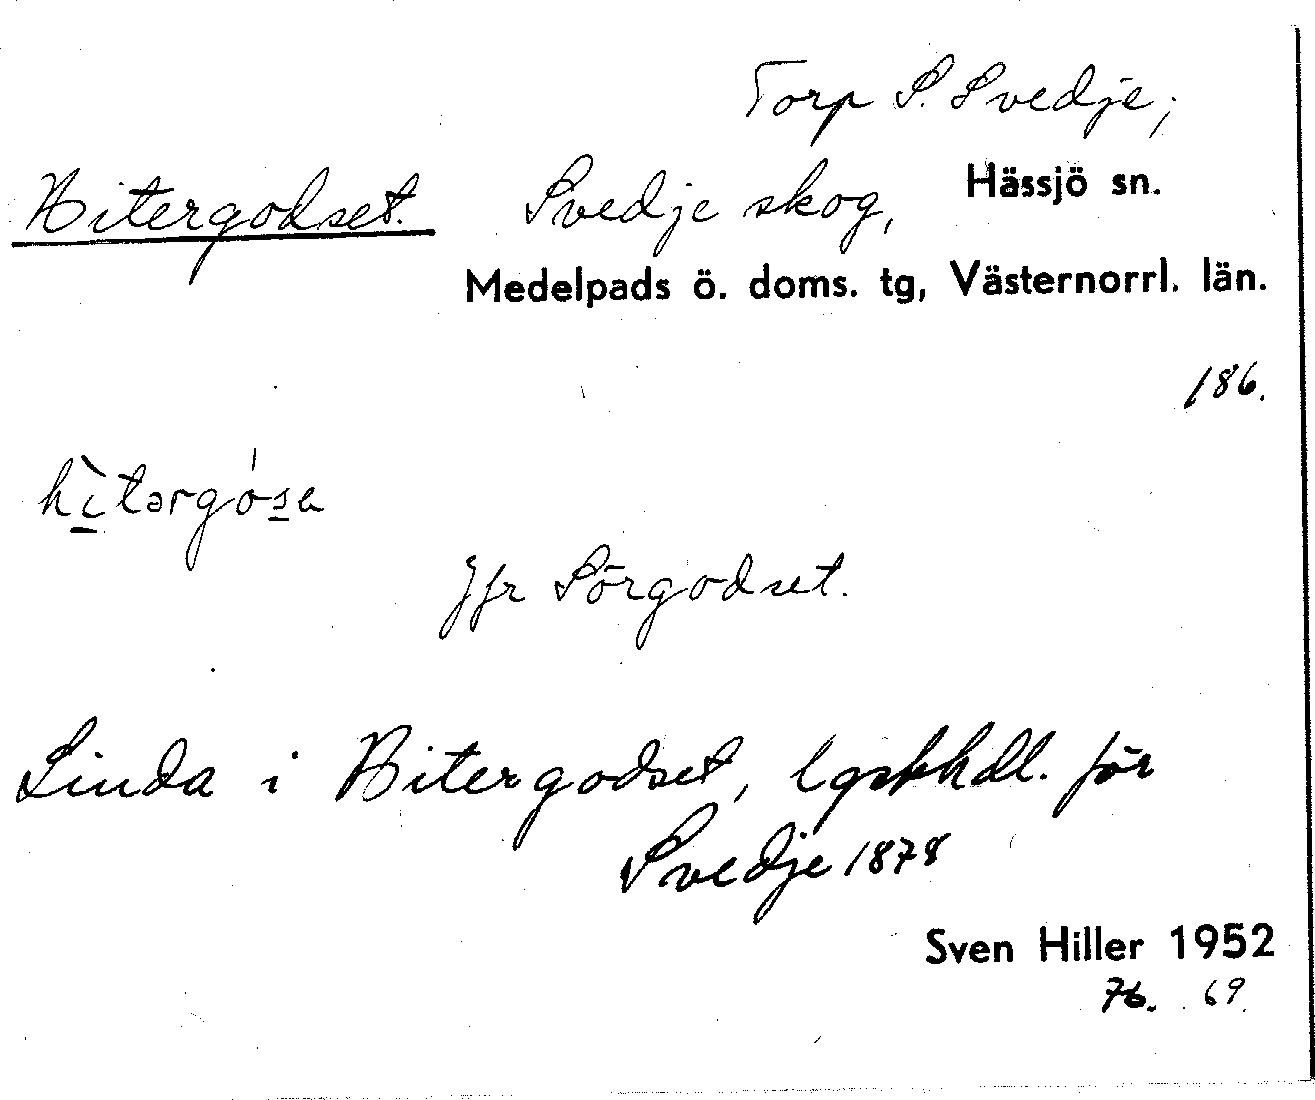 Torp S. Svedje,
Hitergodset. Svedje skog, Hässjö sn.
Medelpads ö. doms. tg, Västernorrl. län.
186.
hìtərgósa
Jfr Sörgodset.
Linda i Hitergodset, lgskhdl. för
Svedje 1878
Sven Hiller 1952
76. 69.